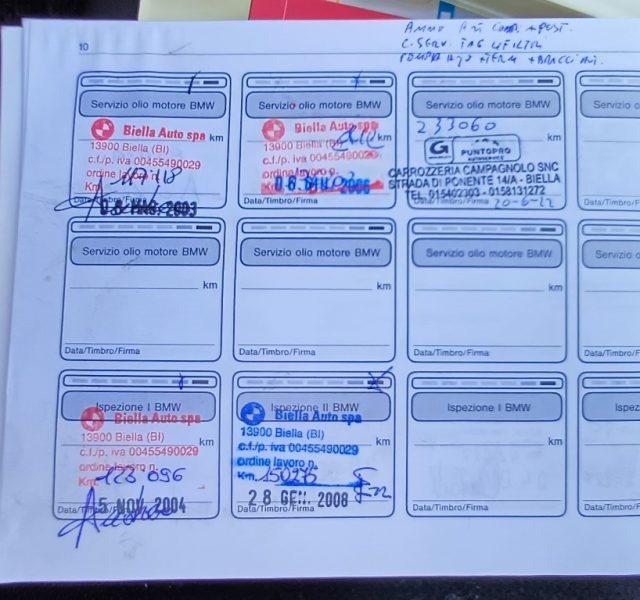 10
C. SERV.
Servizio olio motore BMW
Biella Auto spa
km
13900 Biella (BI)
c.f./p. iva 00455490029
ordine lavoro n.
Km.
2003
Data/Timbro/Firma
Servizio olio motore BMW
Biella Auto spa
km
13900 Biella (BI)
c.f./p. iva 00455490029
ordine lavoro n.
Km.
Data/Timbro/Firma
Servizio olio motore BMW
233060
km
G PUNTOPRO
CARROZZERIA CAMPAGNOLO SNC
STRADA DI PONENTE 14/A - BIELLA
TEL. 015402303 - 0158131272
20-6-22
Servizio o
Servizio olio motore BMW
km
Data/Timbro/Firma
Servizio olio motore BMW
km
Data/Timbro/Firma
Servizio olio motore BMW
km
Data/Timbro/Firma
Servizio o
Data/Timbro/Firma
Ispezione I BMW
Biella Auto spa
13900 Biella (BI)
km
c.f./p. iva 00455490029
ordine lavoro n.
Km. 123 096
5 NOV. 2004
Data/Timbro/Firma
Ispezione II BMW
Biella Auto spa
13900 Biella (BI)
km
c.f./p. iva 00455490029
ordine lavoro n.
Km. 150275
28 GEN. 2008
Data/Timbro/Firma
Ispezione I BMW
km
Data/Timbro/Firma
Data/Timbro/Firma